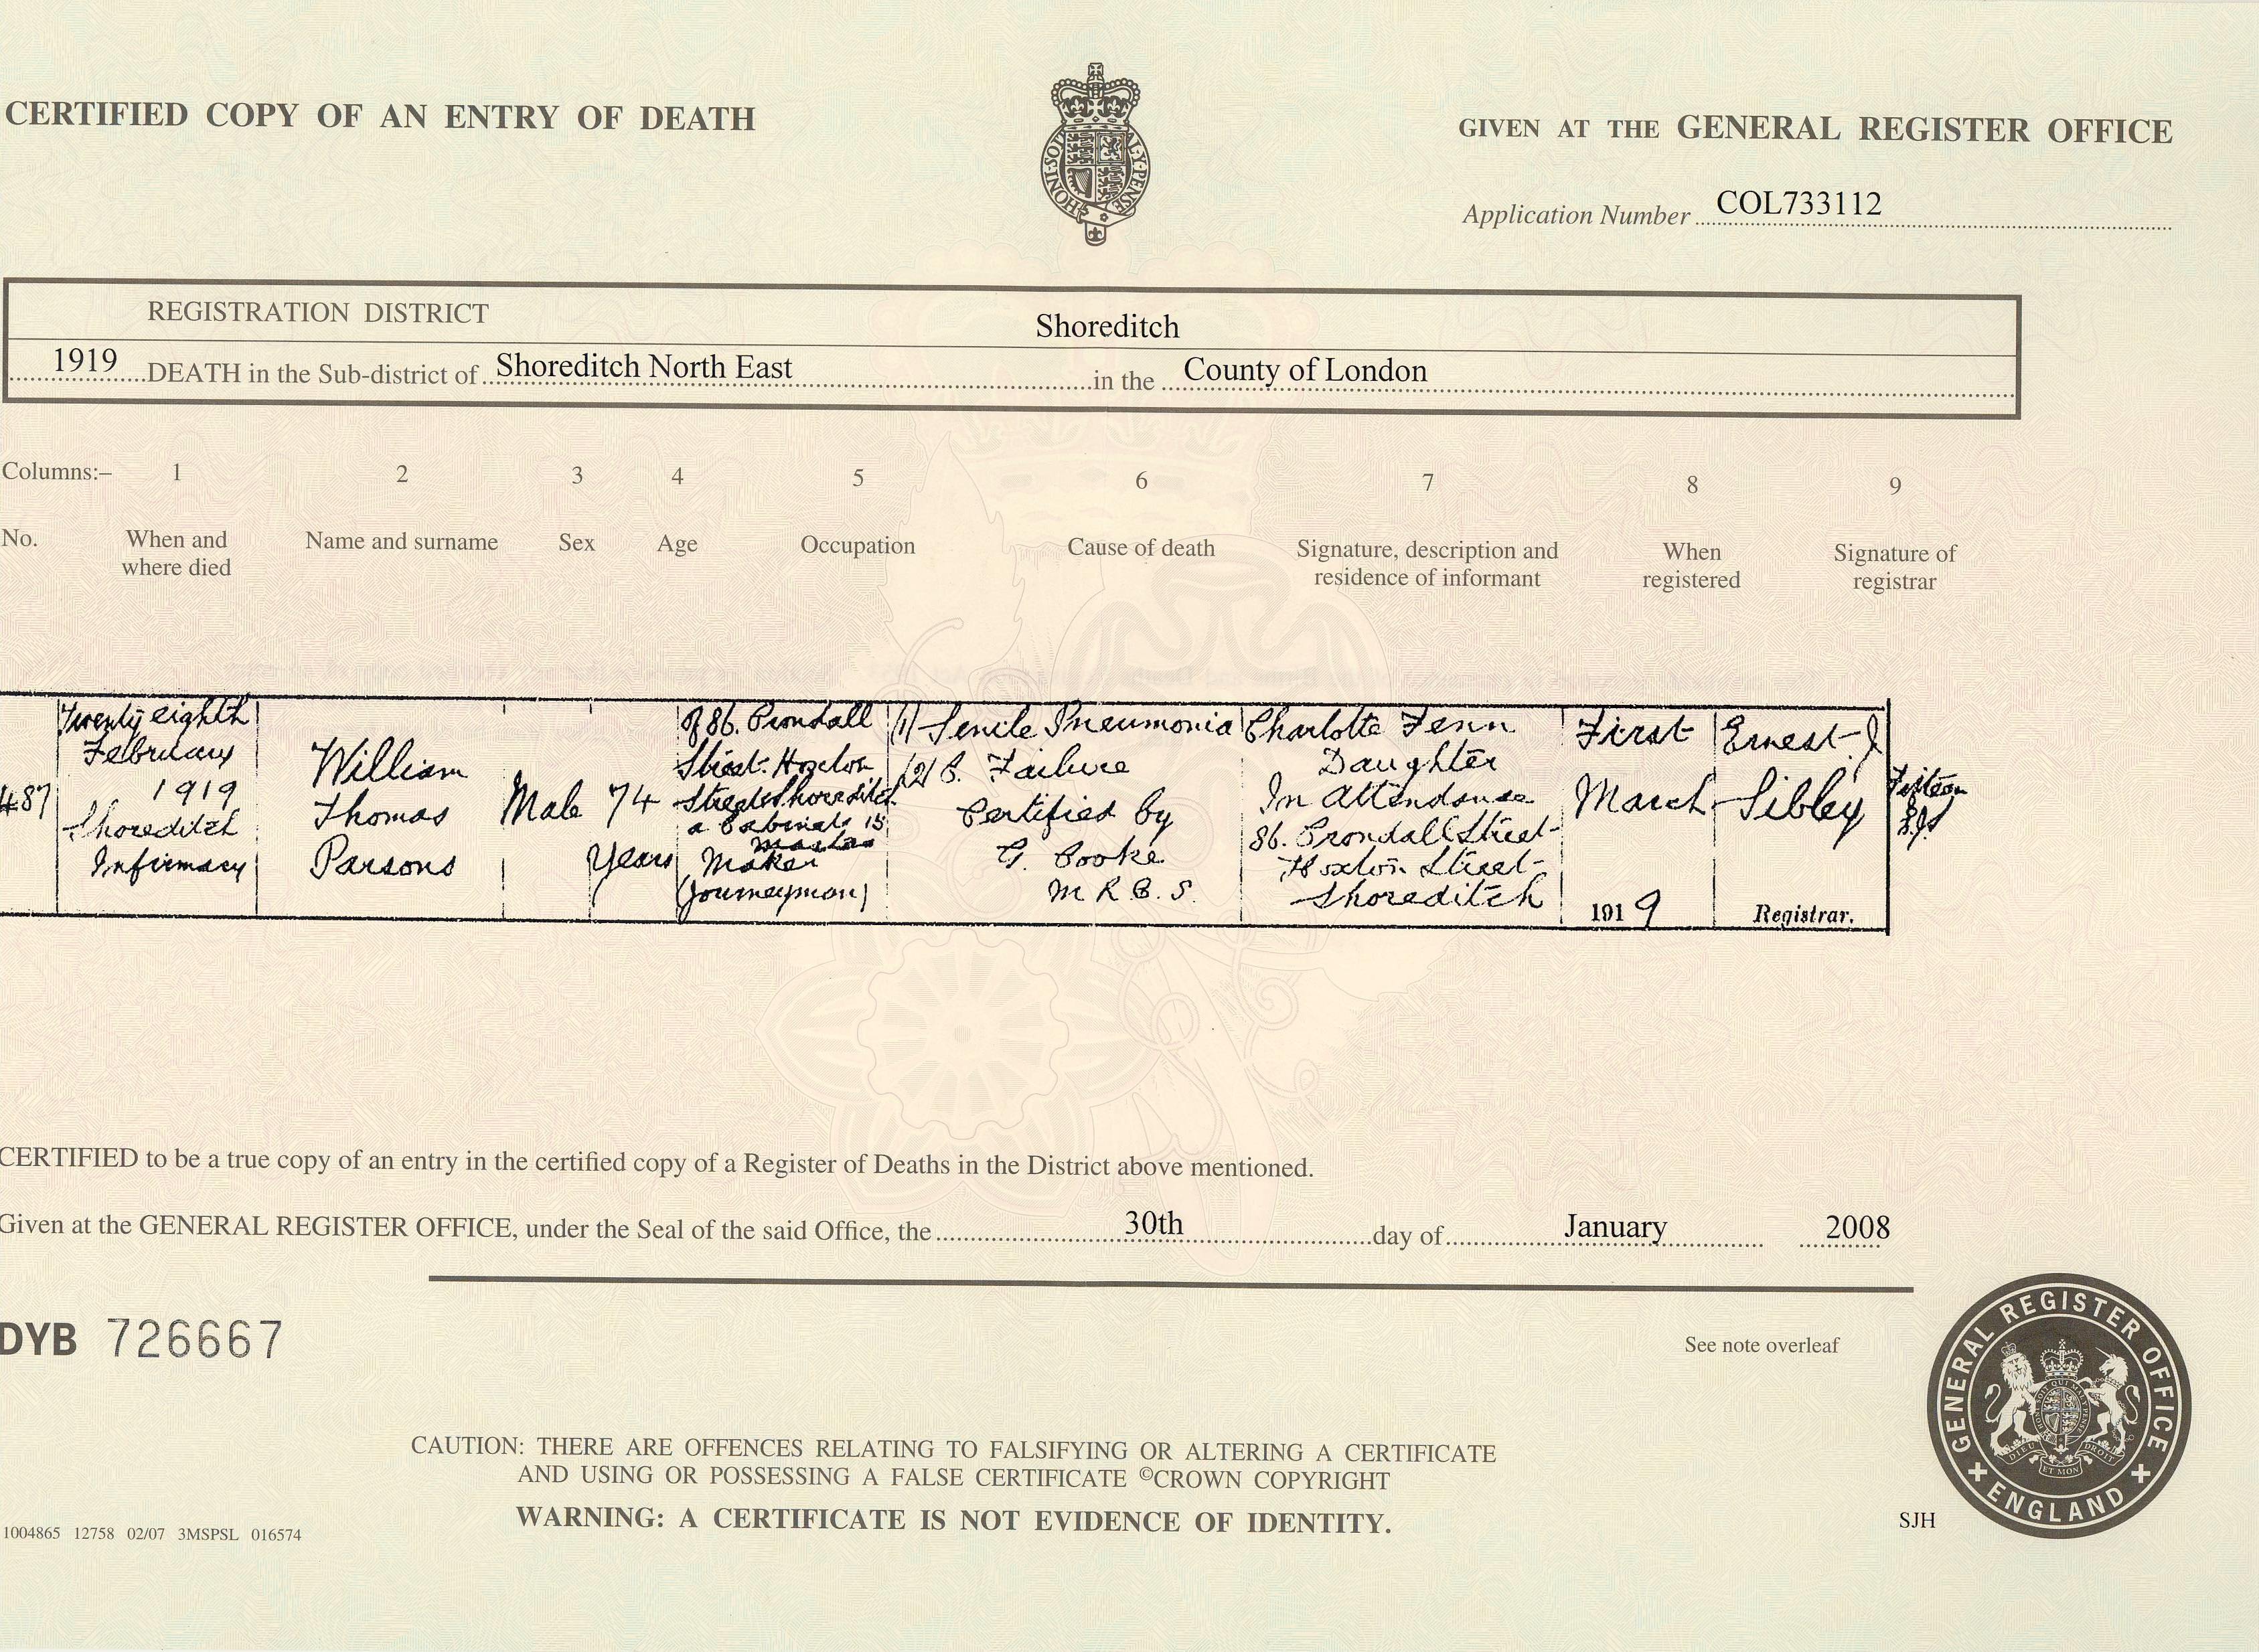 CERTIFIED COPY OF AN ENTRY OF DEATH
GIVEN AT THE GENERAL REGISTER OFFICE
HONI·SOI
AL·Y·PENSE
Application Number COL733112
REGISTRATION DISTRICT
Shoreditch
1919 DEATH in the Sub-district of Shoreditch North East in the County of London
Columns:– 1 2 3 4 5 6 7 8 9
No. When and where died Name and surname Sex Age Occupation Cause of death Signature, description and residence of informant When registered Signature of registrar
487
Twenty eighth
February
1919
Shoreditch
Infirmary
William
Thomas
Parsons
Male
74
Years
of 86. Crondall
Street. Hoxton
Street Shoreditch
a Cabinet 15
Maker
(Journeyman)
(1) Senile Pneumonia
(2) C. Failure
Certified by
G. Cooke
M R C. S.
Charlotte Fenn
Daughter
In Attendance
86. Crondall Street
Hoxton Street
Shoreditch
First
March
1919
Ernest J
Sibley
Registrar.
Fifteen
E.J.S
CERTIFIED to be a true copy of an entry in the certified copy of a Register of Deaths in the District above mentioned.
Given at the GENERAL REGISTER OFFICE, under the Seal of the said Office, the 30th day of January 2008
DYB 726667
See note overleaf
CAUTION: THERE ARE OFFENCES RELATING TO FALSIFYING OR ALTERING A CERTIFICATE
AND USING OR POSSESSING A FALSE CERTIFICATE ©CROWN COPYRIGHT
WARNING: A CERTIFICATE IS NOT EVIDENCE OF IDENTITY.
1004865 12758 02/07 3MSPSL 016574
SJH
GENERAL REGISTER OFFICE
ENGLAND
DIEU ET MON DROIT